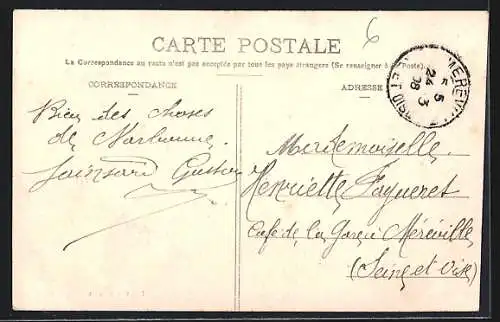 6
CARTE POSTALE
La Correspondance au recto n'est pas acceptée par tous les pays étrangers (Se renseigner à la Poste).
CORRESPONDANCE
ADRESSE
MÉRÉVILLE
5
24 3
08
ET OISE
Bien des choses
de Narbonne.
Gaston
Mademoiselle
Henriette Fagueret
Café de la Gare à Méréville
(Seine et Oise)